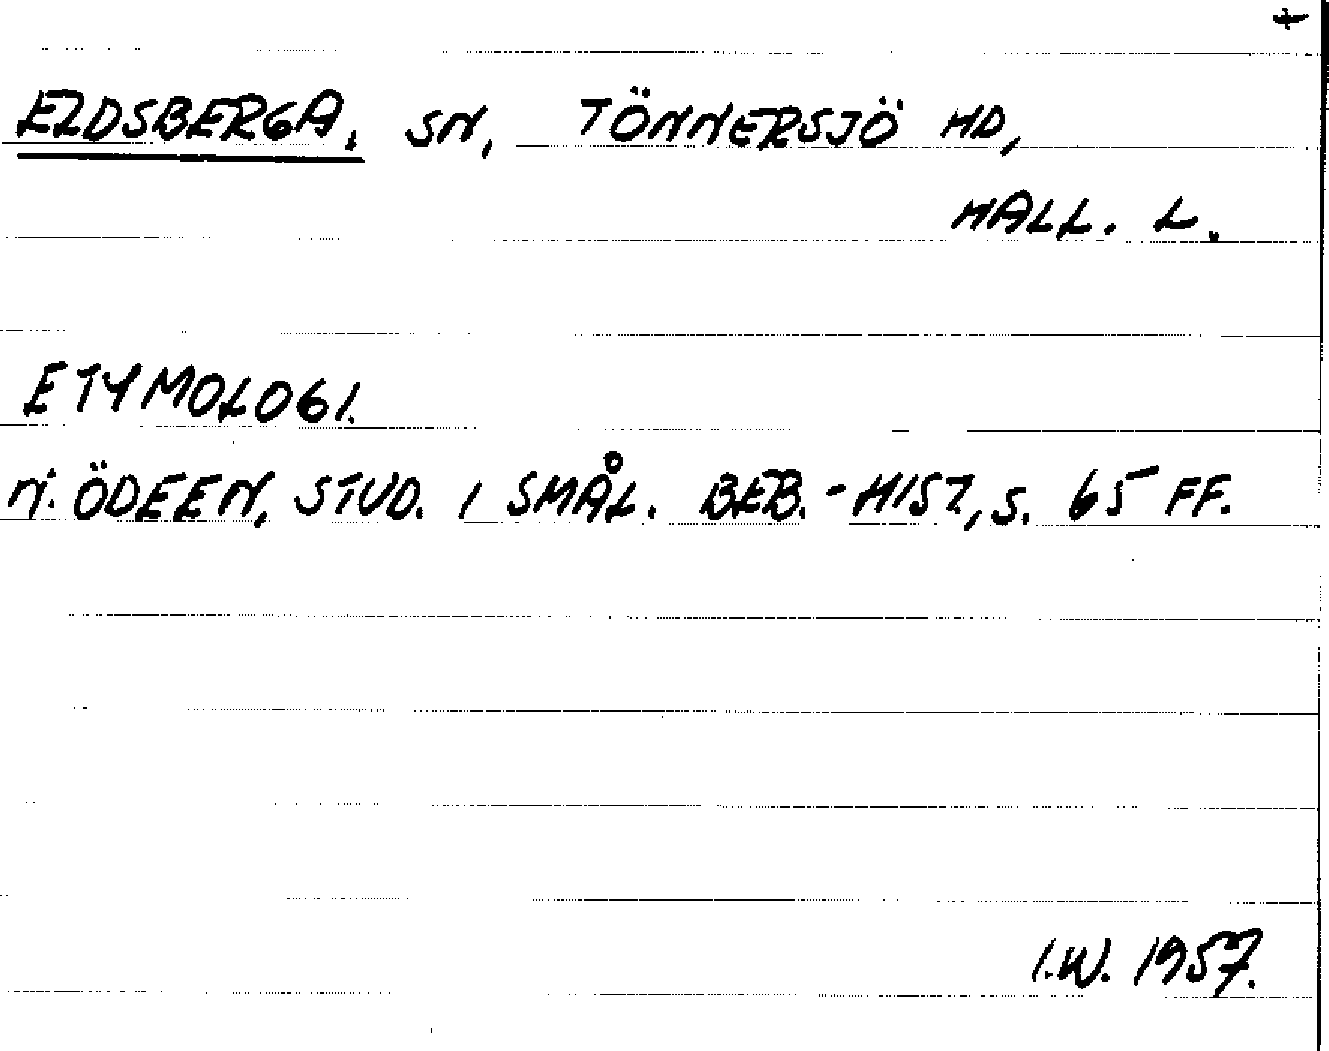 ELDSBERGA, SN, TÖNNERSJÖ HD,
HALL. L.
ETYMOLOGI.
N. ÖDEEN, STUD. I SMÅL. BEB.-HIST, S. 65 FF.
I.W. 1957.